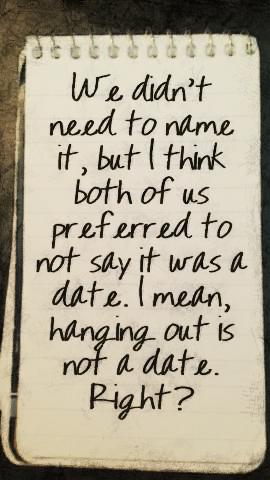 We didn't
need to name
it, but I think
both of us
preferred to
not say it was a
date. I mean,
hanging out is
not a date.
Right?